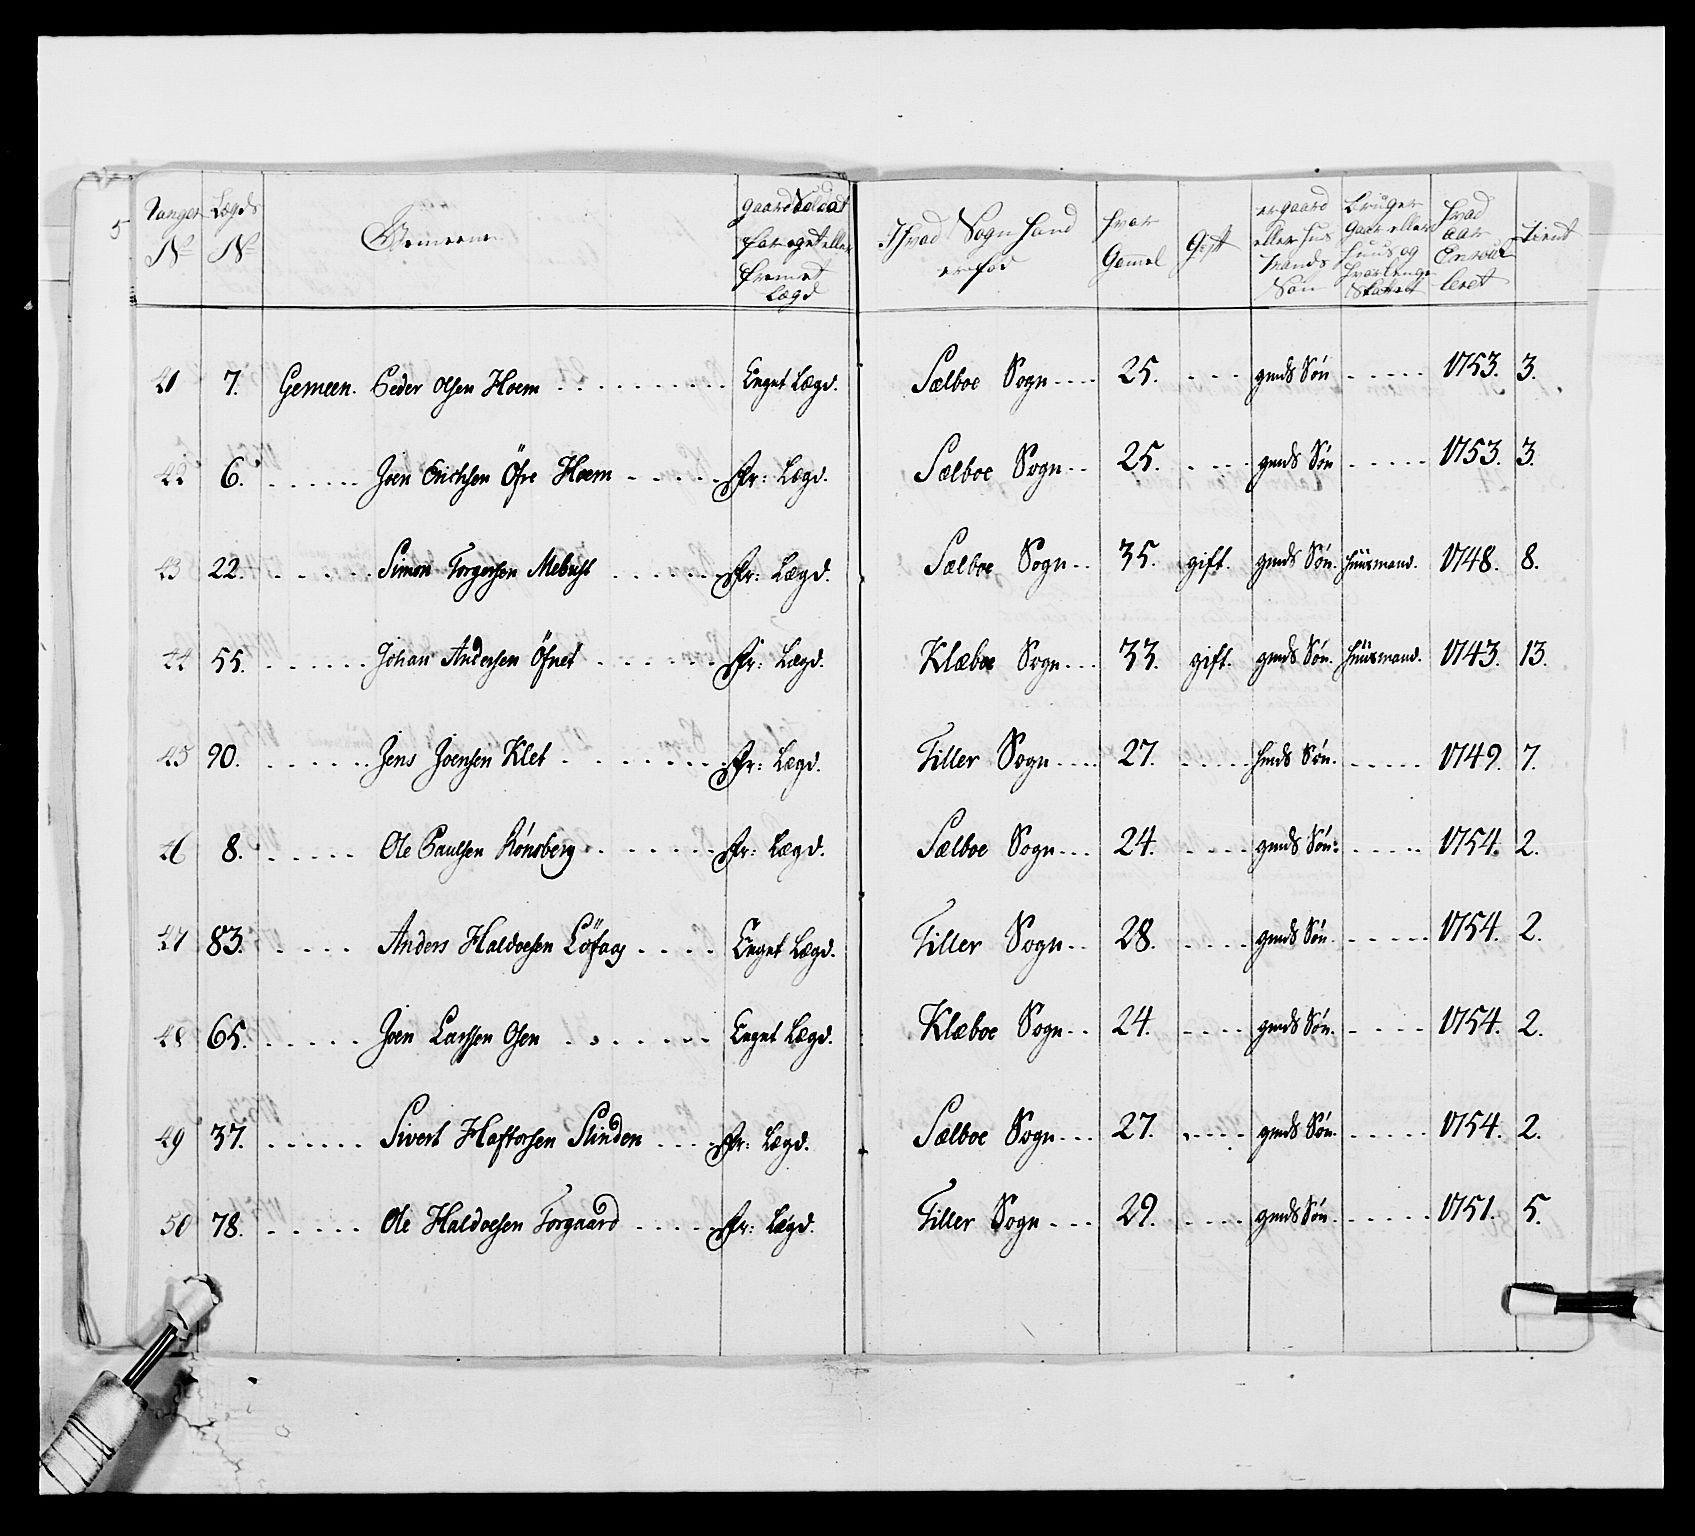 5
Ranger No
Lægds No
Gemeene
gaard Soldat for eget eller fremet Lægd
I hvad Sogn hand er fød
hvor Gamel
Gift
er gaard eller hus mands Søn
bruger gaar eller huus og hvor lenge
hvad aar Enroulleret
tient
41 7. Gemeen. Peder Olsen Hoem Eeget Lægd. Sælboe Sogn 25. gmds Søn 1753. 3.
42 6. Joen Erichsen Öfre Hoem Fr: Lægd. Sælboe Sogn 25. gmds Søn 1753. 3.
43 22. Simon Torgersen Mebust Fr: Lægd. Sælboe Sogn 35. gift. gmds Søn. huusmand. 1748. 8.
44 55. Johan Andersen Öfnet Fr: Lægd. Klæboe Sogn 33. gift. gmds Søn. huusmand. 1743. 13.
45 90. Jens Joensen Klet Fr: Lægd. Tiller Sogn 27. hmds Søn. 1749. 7.
46 8. Ole Paulsen Rönsberg Fr: Lægd. Sælboe Sogn 24. gmds Søn. 1754. 2.
47 83. Anders Haldoesen Löfaas Eeget Lægd. Tiller Sogn 28. gmds Søn. 1754. 2.
48 65. Joen Larssen Osen Eeget Lægd. Klæboe Sogn 24. gmds Søn. 1754. 2.
49 37. Sivert Haftorsen Slinden Fr: Lægd. Sælboe Sogn 27. gmds Søn. 1754. 2.
50 78. Ole Haldoesen Torgaard Fr: Lægd. Tiller Sogn 29. gmds Søn. 1751. 5.